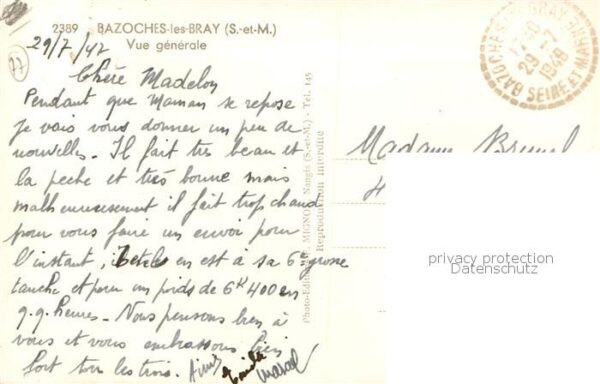 2389 BAZOCHES-les-BRAY (S.-et-M.)
Vue générale
29/7/47
77
Chère Madelon
Pendant que Maman se repose
je vais vous donner un peu de
nouvelles. Il fait tres beau et
la peche et très bonne mais
malheureusement il fait trop chaud
pour vous faire un envoi pour
l'instant, en est a sa 6e grosse
tanche et pour un poids de 6K 400 en
q.q. heures. Nous pensons bien à
vous et vous embrassons bien
fort tous les trois. Aimé
Emile
Marcel
Photo-Edition MIGNON Nangis (S.-et-M.) - Tél. 145
Reproduction interdite
BAZOCHES-LES-BRAY
29-7
1948
SEINE ET MARNE
Madame Brunel
privacy protection
Datenschutz